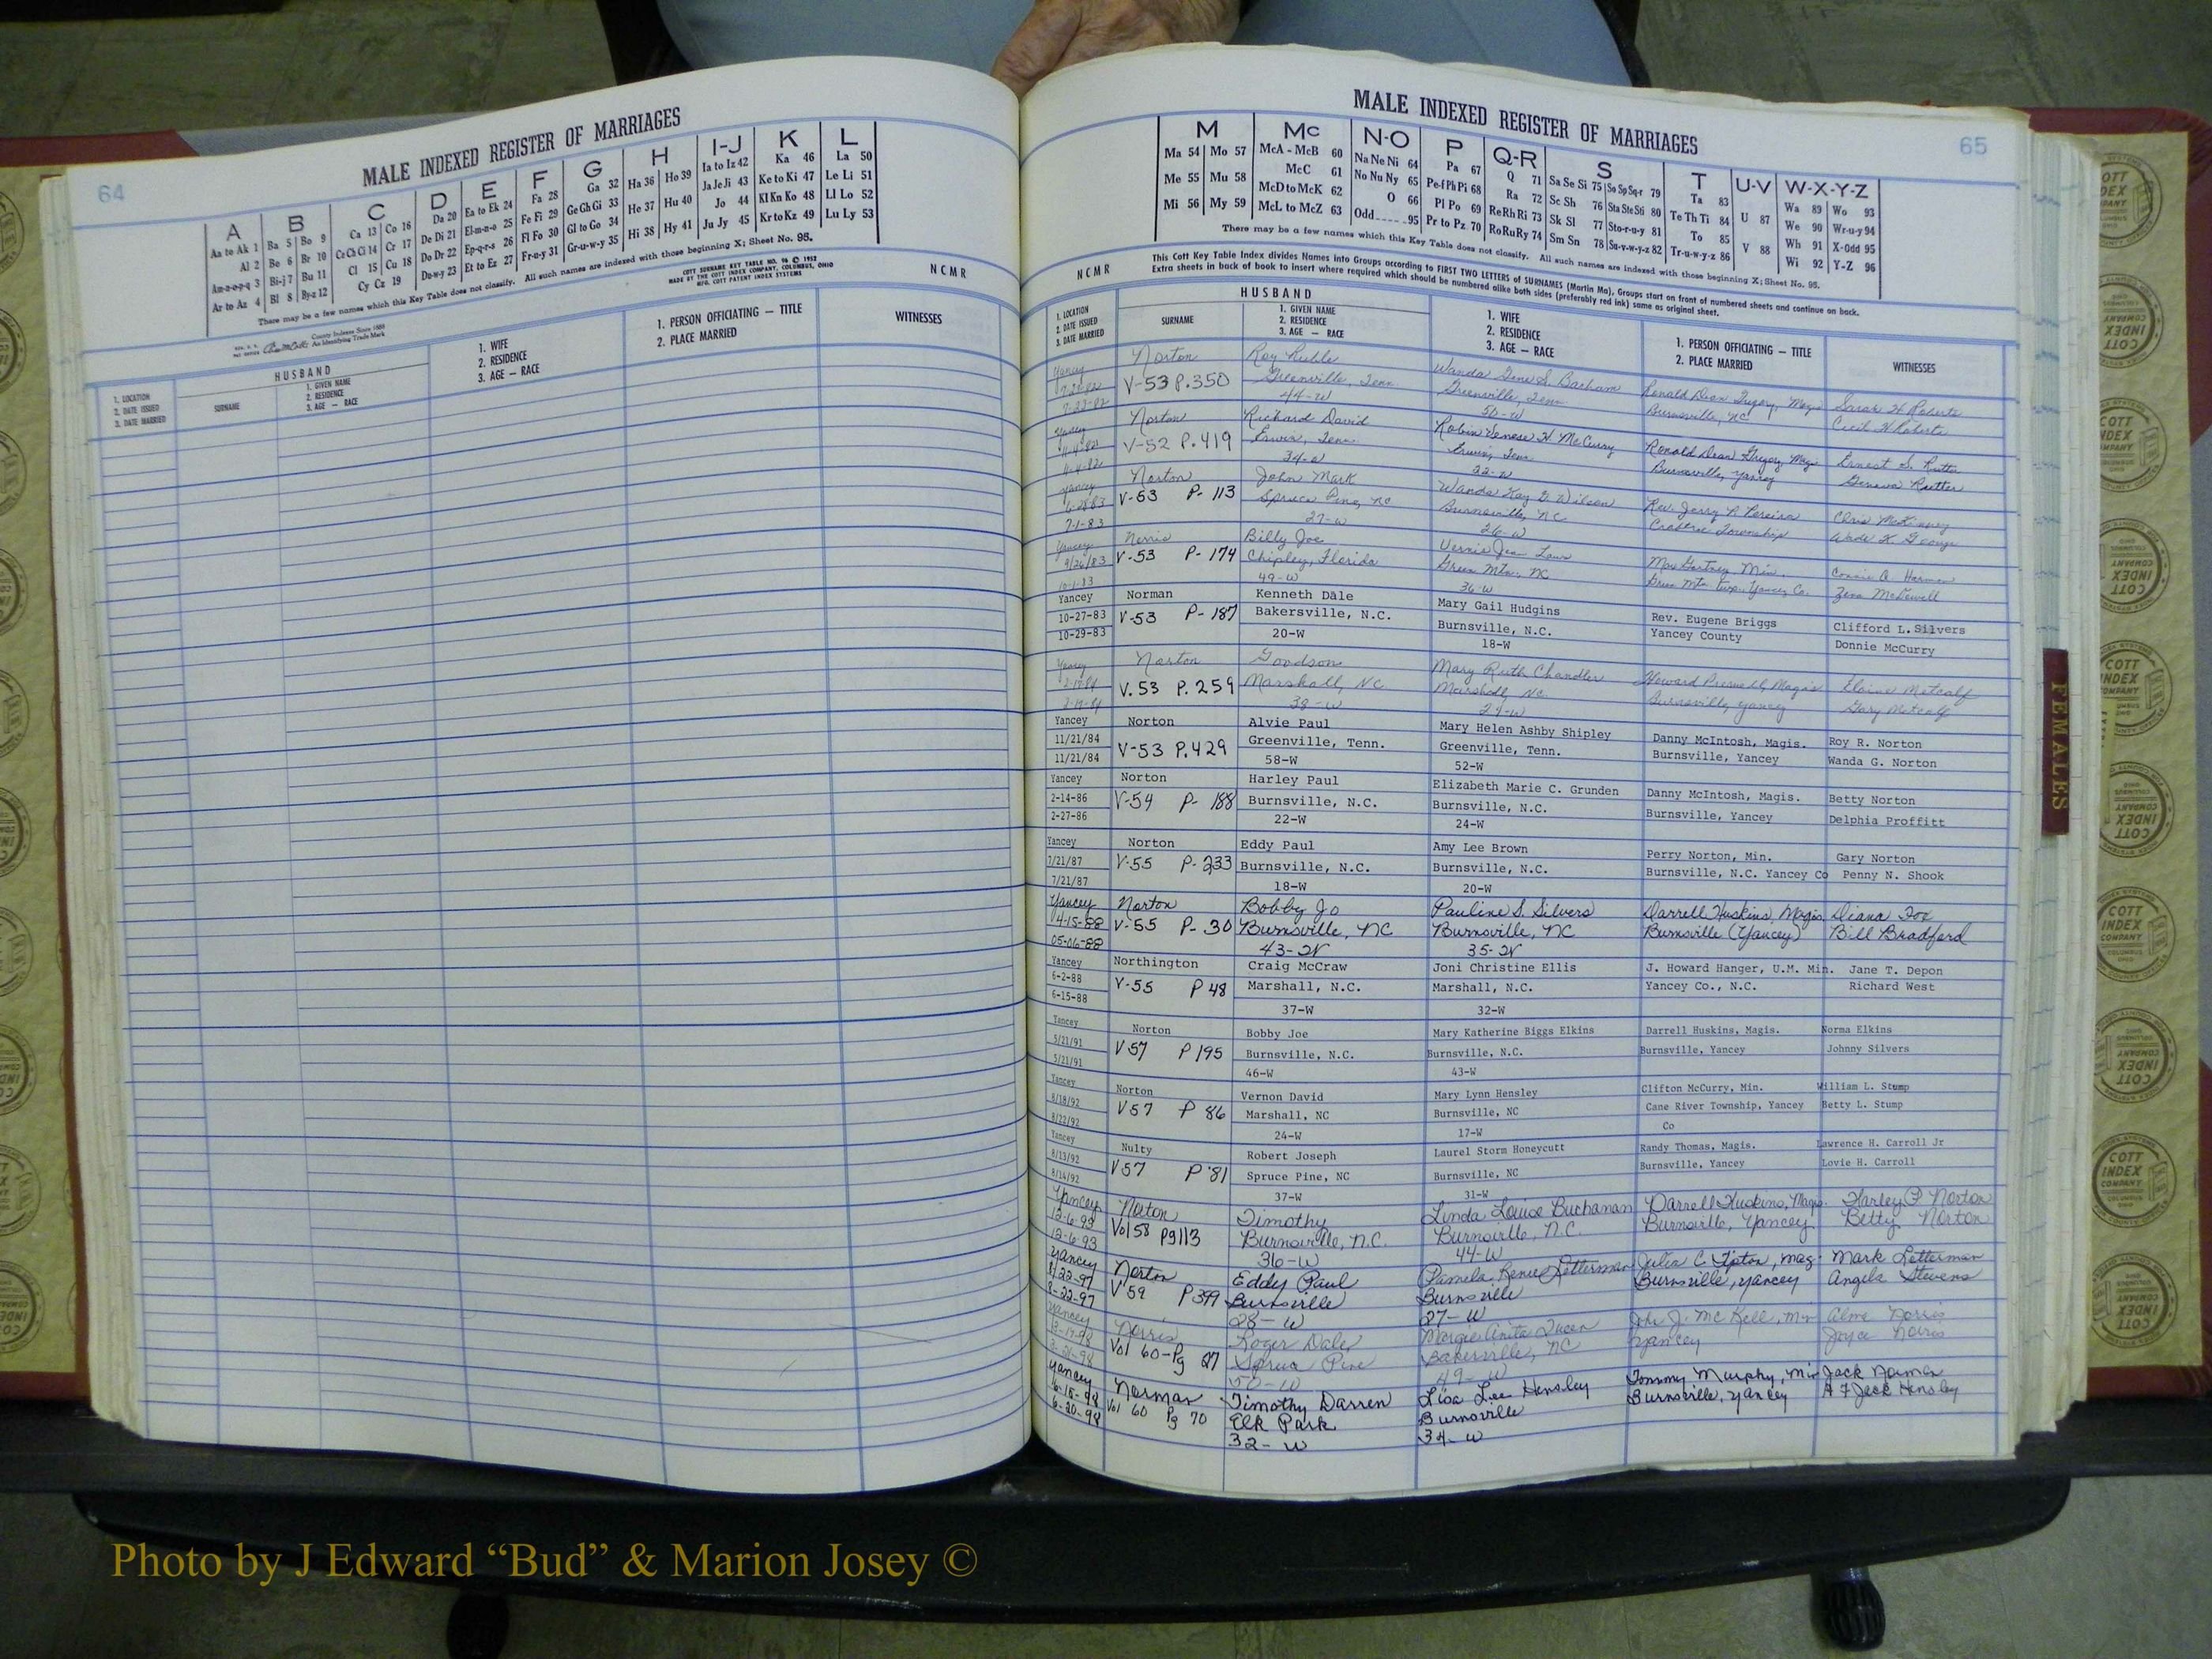 64
MALE INDEXED REGISTER OF MARRIAGES
A B C D E F G H I-J K L
Aa to Ak 1 Ba 5 Bo 9 Ca 13 Co 16 Da 20 Ea to Ek 24 Fa 28 Ga 32 Ha 36 Ho 39 Ia to Iz 42 Ka 46 La 50
Al 2 Be 6 Br 10 Ce Ch Ci 14 Cr 17 De Di 21 El-m-n-o 25 Fe Fi 29 Ge Gh Gi 33 He 37 Hu 40 Ja Je Ji 43 Ke to Ki 47 Le Li 51
Am-n-o-p-q 3 Bi-j 7 Bu 11 Cl 15 Cu 18 Do Dr 22 Ep-q-r-s 26 Fl Fo 30 Gl to Go 34 Hi 38 Hy 41 Jo 44 Kl Kn Ko 48 Ll Lo 52
Ar to Az 4 Bl 8 By-z 12 Cy Cz 19 Du-w-y 23 Et to Ez 27 Fr-u-y 31 Gr-u-w-y 35 Ju Jy 45 Kr to Kz 49 Lu Ly 53
There may be a few names which this Key Table does not classify. All such names are indexed with those beginning X; Sheet No. 95.
COTT SURNAME KEY TABLE NO. 96 © 1952
MADE BY THE COTT INDEX COMPANY, COLUMBUS, OHIO
MFG. COTT PATENT INDEX SYSTEMS
NCMR
County Indexes Since 1888
An Identifying Trade Mark
1. LOCATION
2. DATE ISSUED
3. DATE MARRIED
HUSBAND
SURNAME
1. GIVEN NAME
2. RESIDENCE
3. AGE — RACE
1. WIFE
2. RESIDENCE
3. AGE — RACE
1. PERSON OFFICIATING — TITLE
2. PLACE MARRIED
WITNESSES
65
MALE INDEXED REGISTER OF MARRIAGES
M Mc N-O P Q-R S T U-V W-X-Y-Z
Ma 54 Mo 57 McA - McB 60 Na Ne Ni 64 Pa 67 Q 71 Sa Se Si 75 So Sp Sq-r 79 Ta 83 U 87 Wa 89 Wo 93
Me 55 Mu 58 McC 61 No Nu Ny 65 Pe-f Ph Pi 68 Ra 72 Sc Sh 76 Sta Ste Sti 80 Te Th Ti 84 V 88 We 90 Wr-u-y 94
Mi 56 My 59 McD to McK 62 O 66 Pl Po 69 Re Rh Ri 73 Sk Sl 77 Sto-r-u-y 81 To 85 Wh 91 X-Odd 95
McL to McZ 63 Odd 95 Pr to Pz 70 Ro Ru Ry 74 Sm Sn 78 Su-v-w-y-z 82 Tr-u-w-y-z 86 Wi 92 Y-Z 96
There may be a few names which this Key Table does not classify. All such names are indexed with those beginning X; Sheet No. 95.
NCMR
This Cott Key Table Index divides Names into Groups according to FIRST TWO LETTERS of SURNAMES (Martin Ma), Groups start on front of numbered sheets and continue on back.
Extra sheets in back of book to insert where required which should be numbered alike both sides (preferably red ink) same as original sheet.
1. LOCATION
2. DATE ISSUED
3. DATE MARRIED
HUSBAND
SURNAME
1. GIVEN NAME
2. RESIDENCE
3. AGE — RACE
1. WIFE
2. RESIDENCE
3. AGE — RACE
1. PERSON OFFICIATING — TITLE
2. PLACE MARRIED
WITNESSES
Yancey Norton Roy Wanda Gene S. Ronald Dean Gregory, Magis Sarah H Roberts
V-53 P.350 Greenville, Tenn. Greenville, Tenn Burnsville, NC Cecil H Roberts
44-W 50-W
Yancey Norton Richard David Robin Denese H McCurry Ronald Dean Gregory Mag Ernest S. Rutter
V-52 P.419 Erwin, Tenn. Erwin, Tenn Burnsville, Yancey Geneva Rutter
34-W
Yancey Norton John Mark Wanda Kay D Wilson Rev. Jerry R Pereira Chris McKinney
6-28-83 V-53 P-113 Spruce Pine, NC Burnsville, NC Crabtree Township Wade K. George
7-1-83 27-W 26-W
Yancey Norris Billy Joe Vernie Jean Laws Min. Connie A. Harmon
9/26/83 V-53 P-174 Chipley, Florida Green Mtn., NC Green Mtn Twp. Yancey Co. Zena McDowell
10-1-83 49-W 36-W
Yancey Norman Kenneth Dale Mary Gail Hudgins Rev. Eugene Briggs Clifford L. Silvers
10-27-83 V-53 P-187 Bakersville, N.C. Burnsville, N.C. Yancey County Donnie McCurry
10-29-83 20-W 18-W
Yancey Norton Goodson Mary Ruth Chandler Howard Presnell, Magis Elaine Metcalf
V.53 P.259 Marshall, NC Marshall, NC Burnsville, Yancey Gary Metcalf
38-W
Yancey Norton Alvie Paul Mary Helen Ashby Shipley Danny McIntosh, Magis. Roy R. Norton
11/21/84 V-53 P.429 Greenville, Tenn. Greenville, Tenn. Burnsville, Yancey Wanda G. Norton
11/21/84 58-W 52-W
Yancey Norton Harley Paul Elizabeth Marie C. Grunden Danny McIntosh, Magis. Betty Norton
2-14-86 V-54 P-188 Burnsville, N.C. Burnsville, N.C. Burnsville, Yancey Delphia Proffitt
2-27-86 22-W 24-W
Yancey Norton Eddy Paul Amy Lee Brown Perry Norton, Min. Gary Norton
7/21/87 V-55 P-233 Burnsville, N.C. Burnsville, N.C. Burnsville, N.C. Yancey Co Penny N. Shook
7/21/87 18-W 20-W
Yancey Norton Bobby Jo Pauline S. Silvers Darrell Huskins, Magis. Diana Fox
4-15-88 V-55 P-30 Burnsville, NC Burnsville, NC Burnsville (Yancey) Bill Bradford
05-06-88 43-W 35-W
Yancey Northington Craig McCraw Joni Christine Ellis J. Howard Hanger, U.M. Min. Jane T. Depon
6-2-88 V-55 P 48 Marshall, N.C. Marshall, N.C. Yancey Co., N.C. Richard West
6-15-88 37-W 32-W
Yancey Norton Bobby Joe Mary Katherine Biggs Elkins Darrell Huskins, Magis. Norma Elkins
5/21/91 V57 P 195 Burnsville, N.C. Burnsville, N.C. Burnsville, Yancey Johnny Silvers
5/21/91 46-W 43-W
Yancey Norton Vernon David Mary Lynn Hensley Clifton McCurry, Min. William L. Stump
8/18/92 V57 P 86 Marshall, NC Burnsville, NC Cane River Township, Yancey Co Betty L. Stump
8/22/92 24-W 17-W
Yancey Nulty Robert Joseph Laurel Storm Honeycutt Randy Thomas, Magis. Lawrence H. Carroll Jr
8/13/92 V57 P 81 Spruce Pine, NC Burnsville, NC Burnsville, Yancey Lovie H. Carroll
8/14/92 37-W 31-W
Yancey Norton Timothy Linda Louise Buchanan Darrell Huskins, Magis. Harley P Norton
12-6-93 Vol 58 Pg 113 Burnsville, N.C. Burnsville, N.C. Burnsville, Yancey Betty Norton
12-6-93 36-W 44-W
Yancey Norton Eddy Paul Pamela Renee Letterman Julia C Tipton, Mag. Mark Letterman
8/22-97 V 59 P 399 Burnsville Burnsville Burnsville, Yancey Angela Stevens
8-22-97 28-W 27-W
Yancey Norris Roger Dale Margie Anita John J. McKell, Min Alma Norris
Vol 60-Pg 27 Spruce Pine Bakersville, NC Yancey Joyce Norris
50-W 49-W
Yancey Norman Timothy Darren Lisa Lee Hensley Tommy Murphy, Min Jack Norman
6-15-98 Vol 60 Pg 70 Elk Park Burnsville Burnsville, Yancey A F Jack Hensley
6-20-98 32-W 34-W
FEMALES
COTT INDEX COMPANY
Photo by J Edward “Bud” & Marion Josey ©